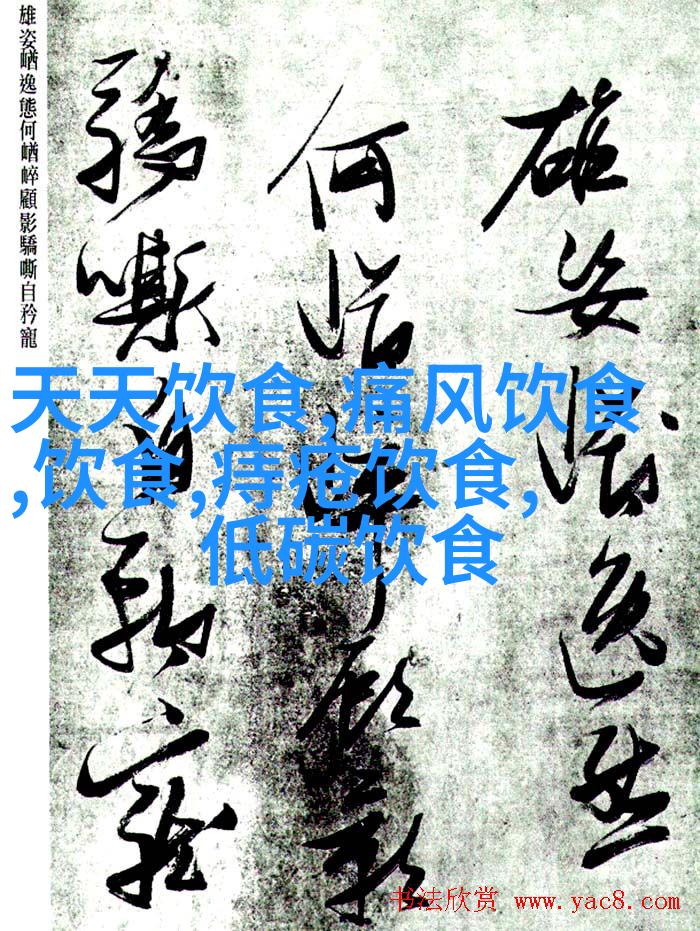 雄姿崷逸態
何崷崪顧影
驕嘶自矜寵
雄姿崷逸態何崷崪顧影驕嘶自矜寵
天天饮食,痛风饮食
,饮食,痔疮饮食,
低碳饮食
书法欣赏 www.yac8.com